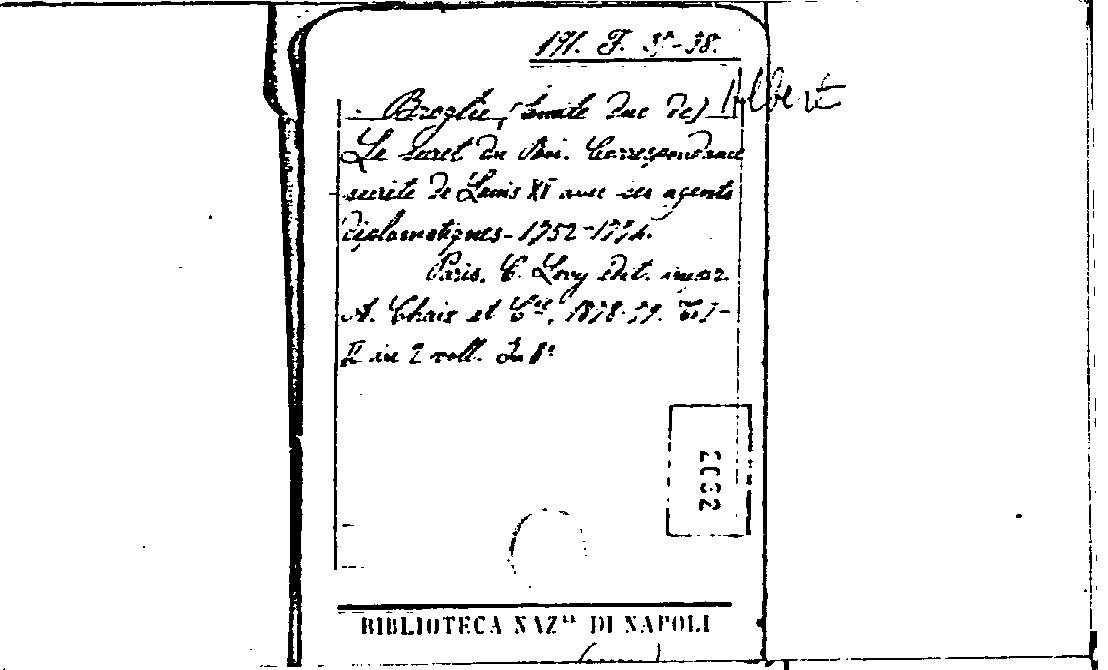 191. F. 37-38.
Broglie, (Emile Duc de) Albert
Le Secret du Roi. Correspondance
secrète de Louis XV avec ses agents
diplomatiques - 1752-1774.
Paris. C. Levy Edit. impr.
A. Chaix et Cie, 1878-79. T I-
II in 2 voll. In 8°
2032
BIBLIOTECA NAZle DI NAPOLI